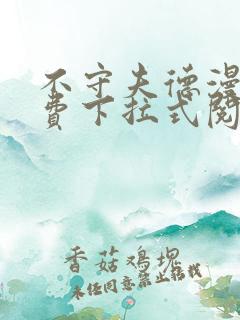 不守夫德漫
费下拉式阅
香菇鸡块
未经同意禁止转载